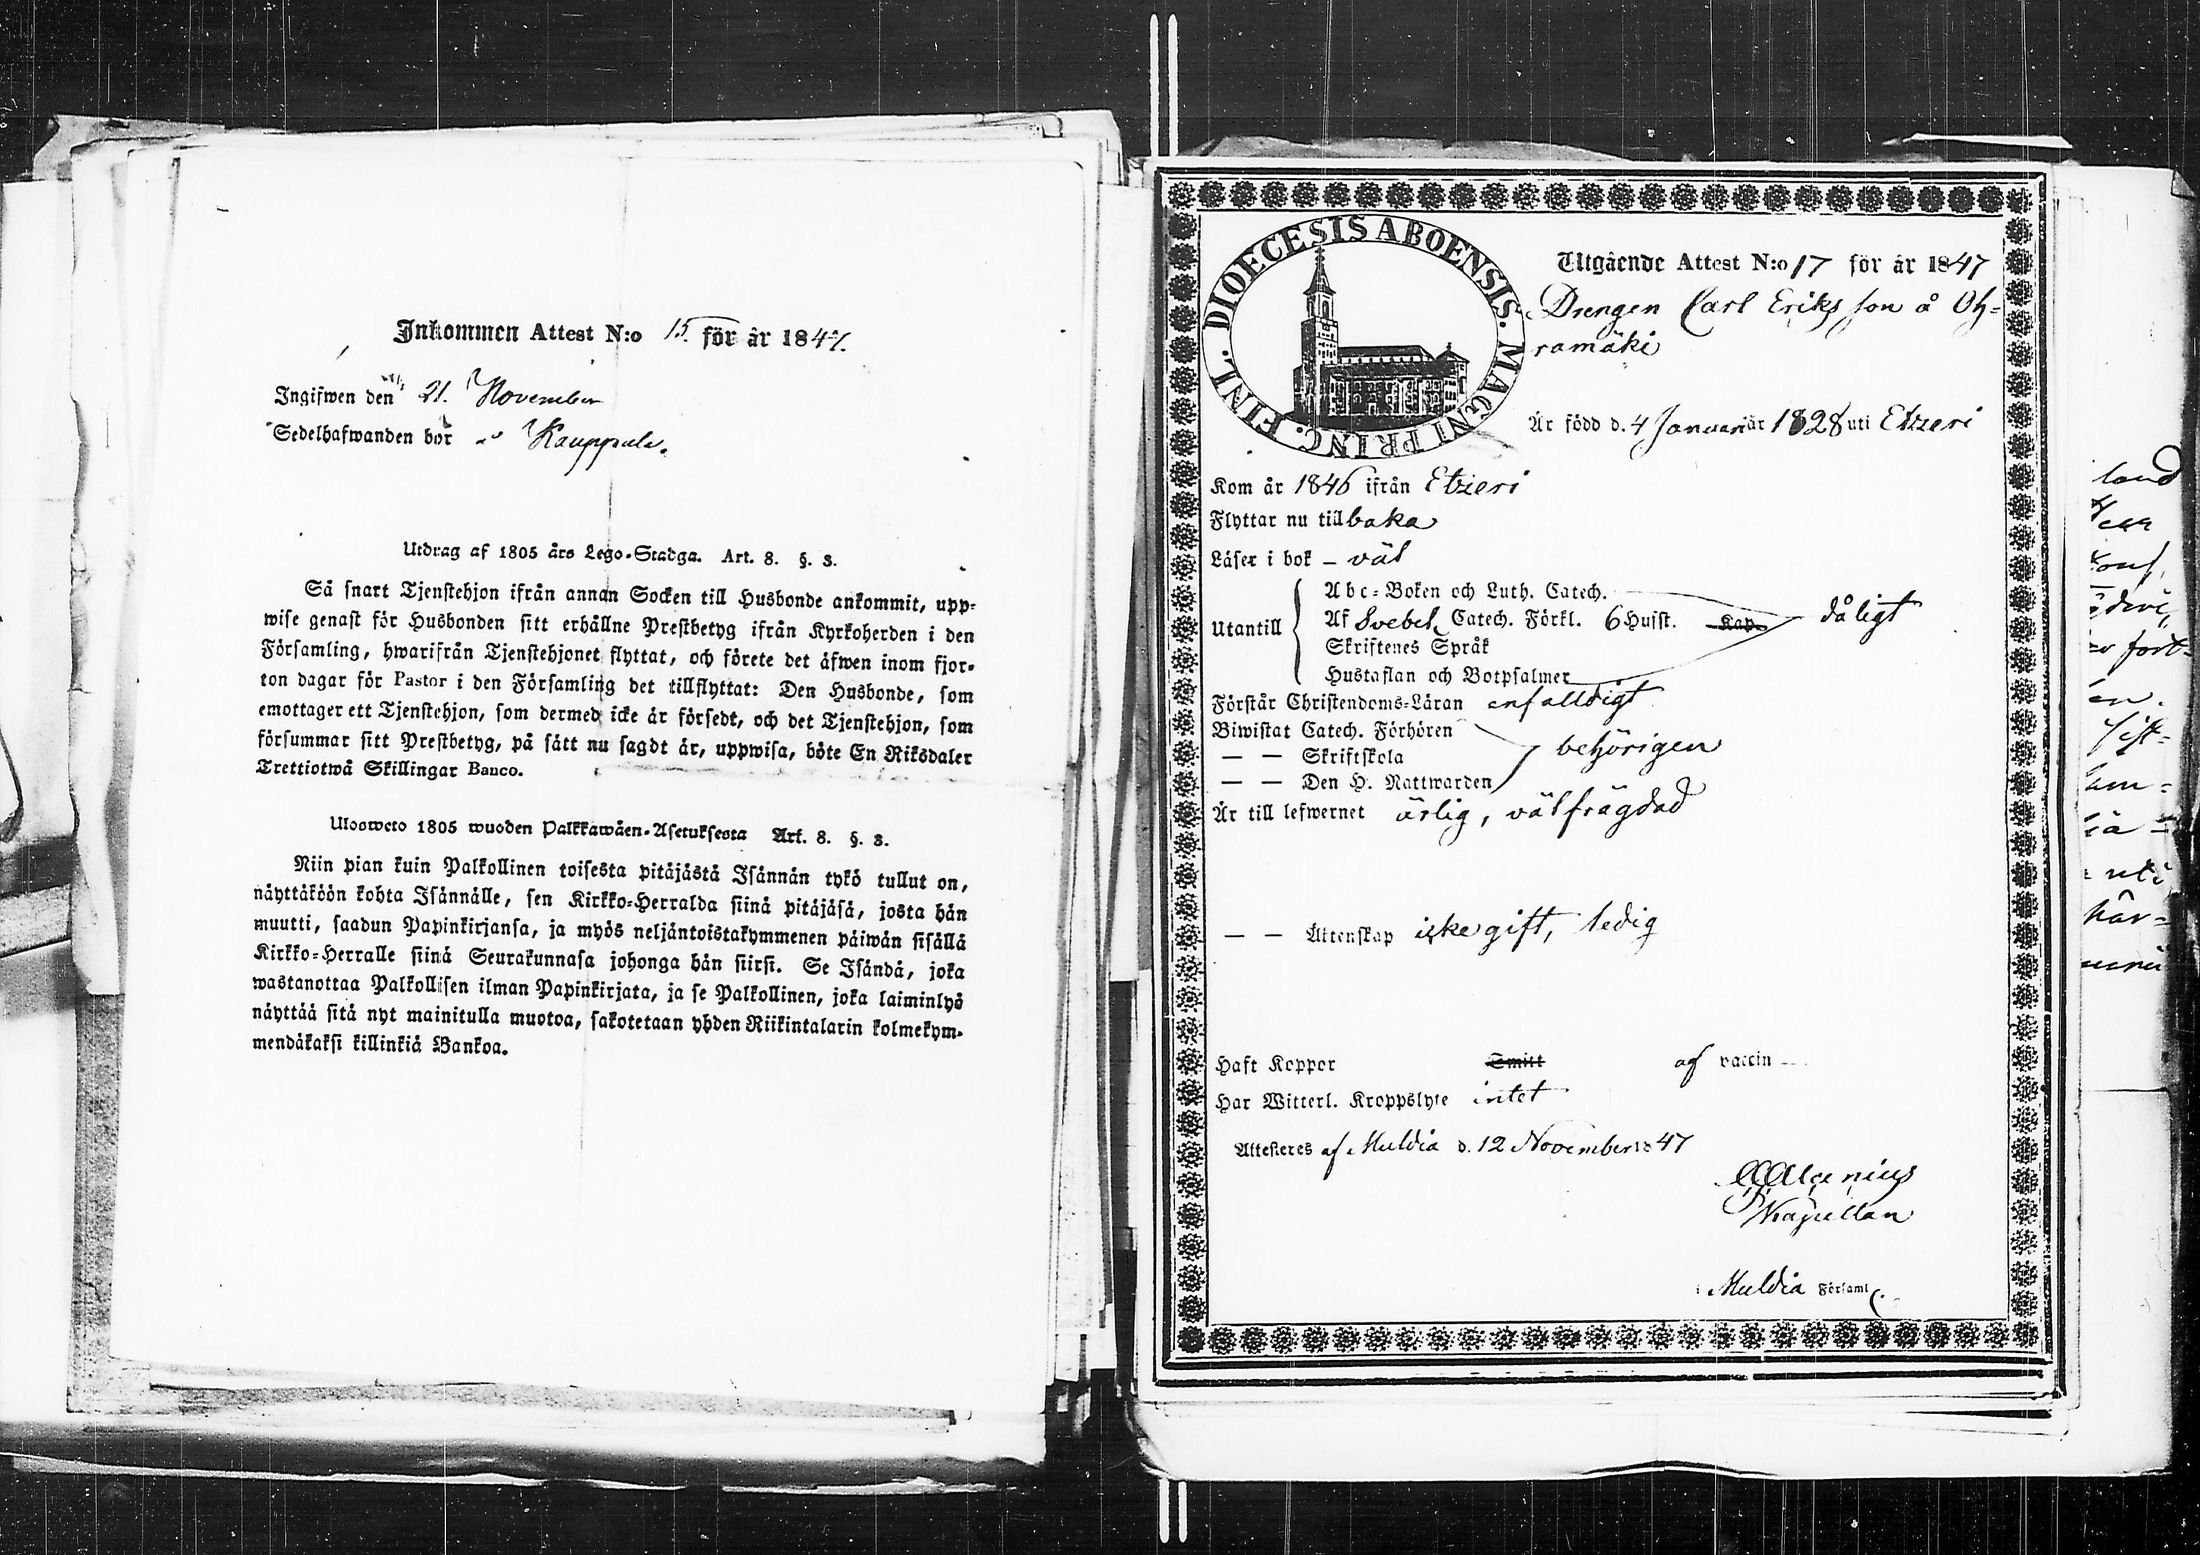 Inkommen Attest N:o 15. för år 1847.
Ingifwen den 21. November
Sedelhafwanden bor Kauppula.
Utdrag af 1805 års Lego-Stadga. Art. 8. §. 3.
Så snart Tjenstehjon ifrån annan Socken till Husbonde ankommit, upp-
wise genast för Husbonden sitt erhållne Prestbetyg ifrån Kyrkoherden i den
Församling, hwarifrån Tjenstehjonet flyttat, och förete det äfwen inom fjor-
ton dagar för Pastor i den Församling det tillflyttat: Den Husbonde, som
emottager ett Tjenstehjon, som dermed icke är försedt, och det Tjenstehjon, som
försummar sitt Prestbetyg, på sätt nu sagdt är, uppwisa, böte En Riksdaler
Trettiotwå Skillingar Banco.
Uloswето 1805 wuoden Palkkawäen-Asetuksesta Art. 8. §. 3.
Niin pian kuin Palkollinen toisesta pitäjästä Isännän tykö tullut on,
näyttäköön kohta Isännälle, sen Kirkko-Herralda siinä pitäjäsä, josta hän
muutti, saadun Papinkirjansa, ja myös neljäntoistakymmenen päiwän sisällä
Kirkko-Herralle siinä Seurakunnasa johonga hän siirsi. Se Isändä, joka
wastanottaa Palkollisen ilman Papinkirjata, ja se Palkollinen, joka laiminlyö
näyttää sitä nyt mainitulla muotoa, sakotetaan yhden Riikintalarin kolmekym-
mendäkaksi killinkiä Bankoa.
DIOECESIS ABOENSIS. MAGNI PRINC. FINL.
Utgående Attest N:o 17 för år 1847
Drengen Carl Eriksson å Oh-
ramäki
Är född d. 4 Januari år 1828 uti Etzeri
Kom år 1846 ifrån Etzeri
Flyttar nu tillbaka
Läser i bok – väl
Utantill
Abc-Boken och Luth. Catech.
Af Svebel. Catech. Förkl. 6 Hufst. Kap. dåligt
Skriftenes Språk
Hustaflan och Botpsalmer
Förstår Christendoms-Läran enfalldigt
Biwistat Catech. Förhören
— — Skriftskola behörigen
— — Den H. Nattwarden
Är till lefwernet ärlig, välfrägdad
— — Ägtenskap icke gift, ledig
Haft Koppor Smitt af vaccin —
Har Witterl. Kroppslyte intet
Attesteres af Muldia d. 12 November 1847
Kapellan
i Muldia Församl.
land
fort-
uti
här-